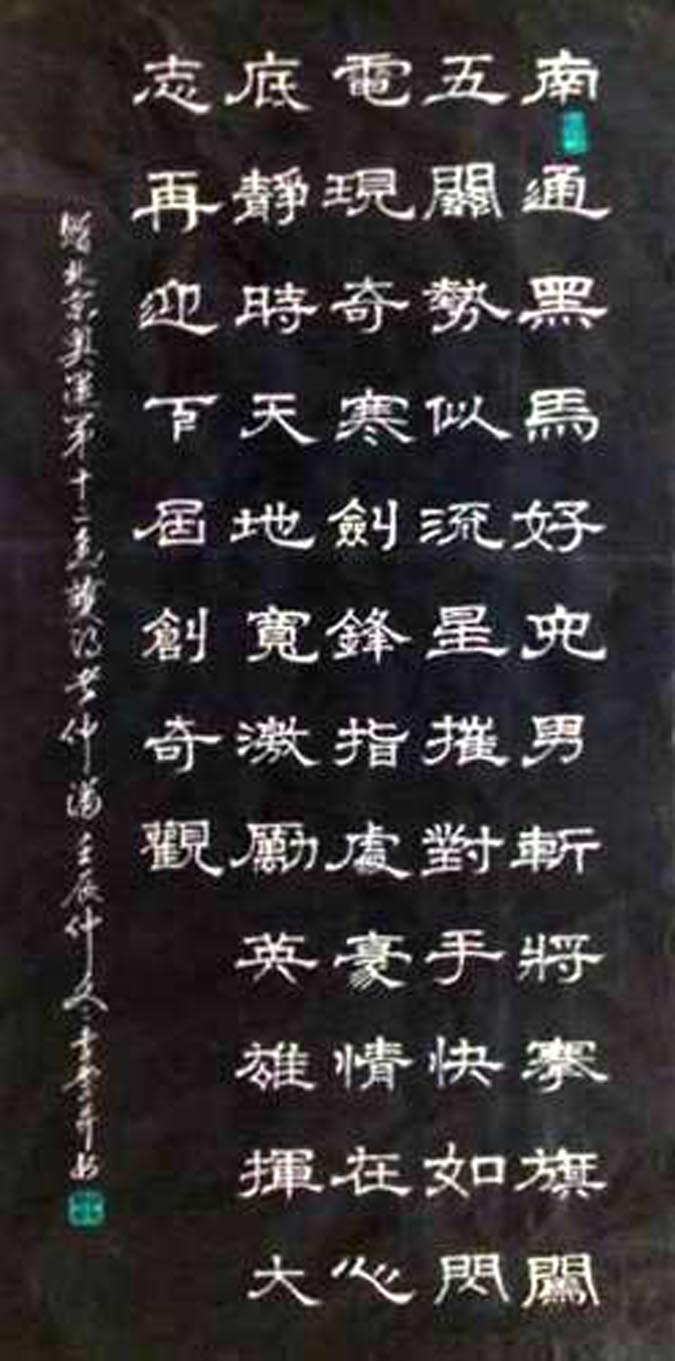 南通黑馬好兜男斬將搴旗闖
五關勢似流星摧對手快如閃
電現奇寒劍鋒指處豪情在心
底靜時天地寬激勵英雄揮大
志再迎下屆創奇觀
贈北京奧運第十二金獲得者仲滿壬辰仲冬書雲并